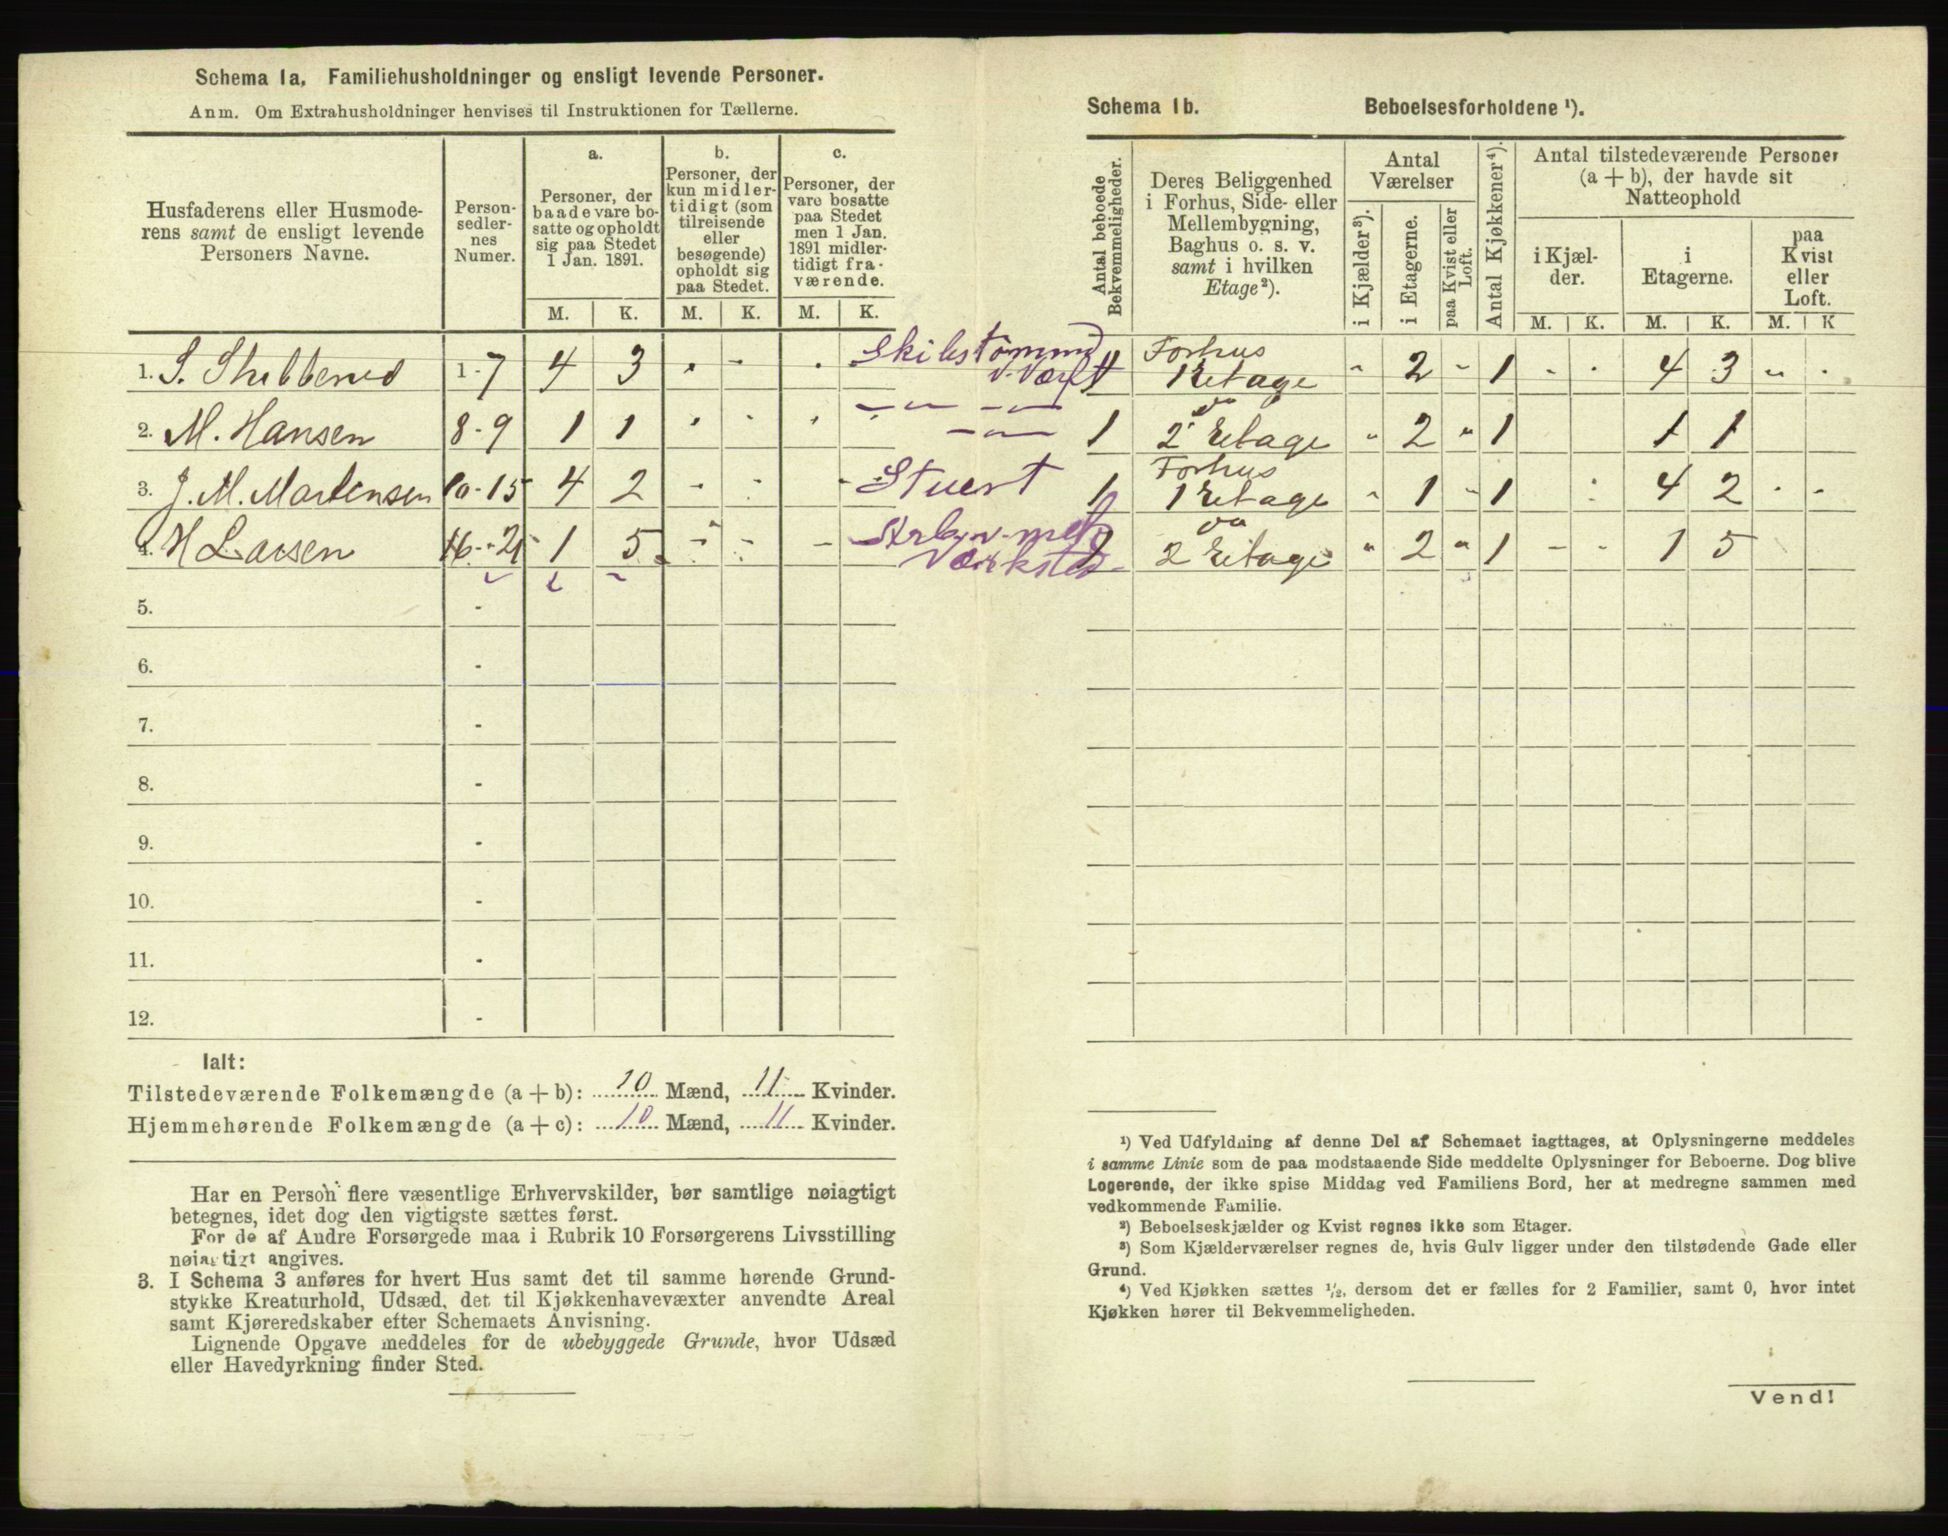 Schema 1a. Familiehusholdninger og ensligt levende Personer.
Anm. Om Extrahusholdninger henvises til Instruktionen for Tællerne.
Husfaderens eller Husmode-
rens samt de ensligt levende
Personers Navne.
Person-
sedler-
nes
Numer.
a.
Personer, der
baade vare bo-
satte og opholdt
sig paa Stedet
1 Jan. 1891.
b.
Personer, der
kun midler-
tidigt (som
tilreisende
eller
besøgende)
opholdt sig
paa Stedet.
c.
Personer, der
vare bosatte
paa Stedet
men 1 Jan.
1891 midler-
tidigt fra-
værende.
M. K. M. K. M. K.
1. S. 1-7 4 3 Skibstømmer
v. Værft
2. M. Hansen 8-9 1 1
3. J. M. Martensen 10-15 4 2 Stuert
4. H Larsen 16-21 1 5 Arb. v. mek
Værksted
5. -
6. -
7. -
8. -
9. -
10. -
11. -
12. -
Ialt:
Tilstedeværende Folkemængde (a + b): 10 Mænd, 11 Kvinder.
Hjemmehørende Folkemængde (a + c): 10 Mænd, 11 Kvinder.
Har en Person flere væsentlige Erhvervskilder, bør samtlige nøiagtigt
betegnes, idet dog den vigtigste sættes først.
For de af Andre Forsørgede maa i Rubrik 10 Forsørgerens Livsstilling
nøiagtigt angives.
3. I Schema 3 anføres for hvert Hus samt det til samme hørende Grund-
stykke Kreaturhold, Udsæd, det til Kjøkkenhavevæxter anvendte Areal
samt Kjøreredskaber efter Schemaets Anvisning.
Lignende Opgave meddeles for de ubebyggede Grunde, hvor Udsæd
eller Havedyrkning finder Sted.
Schema 1b. Beboelsesforholdene ¹).
Antal beboede
Bekvemmeligheder.
Deres Beliggenhed
i Forhus, Side- eller
Mellembygning,
Baghus o. s. v.
samt i hvilken
Etage²).
Antal
Værelser
i Kjælder³).
i Etagerne.
paa Kvist eller
Loft.
Antal Kjøkkener⁴).
Antal tilstedeværende Personer
(a + b), der havde sit
Natteophold
i Kjæl-
der.
i
Etagerne.
paa
Kvist
eller
Loft.
M. K. M. K. M. K
1 Forhus
1 Etage " 2 " 1 - - 4 3 " -
1 do
2 Etage " 2 " 1 1 1
1 Forhus
1 Etage " 1 - 1 4 2 - -
1 do
2 Etage " 2 " 1 - - 1 5
¹) Ved Udfyldning af denne Del af Schemaet iagttages, at Oplysningerne meddeles
i samme Linie som de paa modstaaende Side meddelte Oplysninger for Beboerne. Dog blive
Logerende, der ikke spise Middag ved Familiens Bord, her at medregne sammen med
vedkommende Familie.
²) Beboelseskjælder og Kvist regnes ikke som Etager.
³) Som Kjælderværelser regnes de, hvis Gulv ligger under den tilstødende Gade eller
Grund.
⁴) Ved Kjøkken sættes ½, dersom det er fælles for 2 Familier, samt 0, hvor intet
Kjøkken hører til Bekvemmeligheden.
Vend!